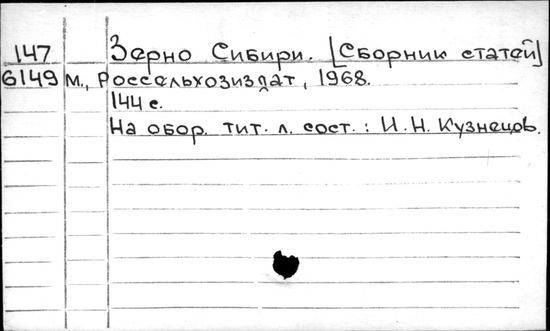 147 Зерно Сибири. [Сборник статей]
6149 М., Россельхозиздат, 1968.
144 с.
На обор. тит. л. сост.: И. Н. Кузнецов.